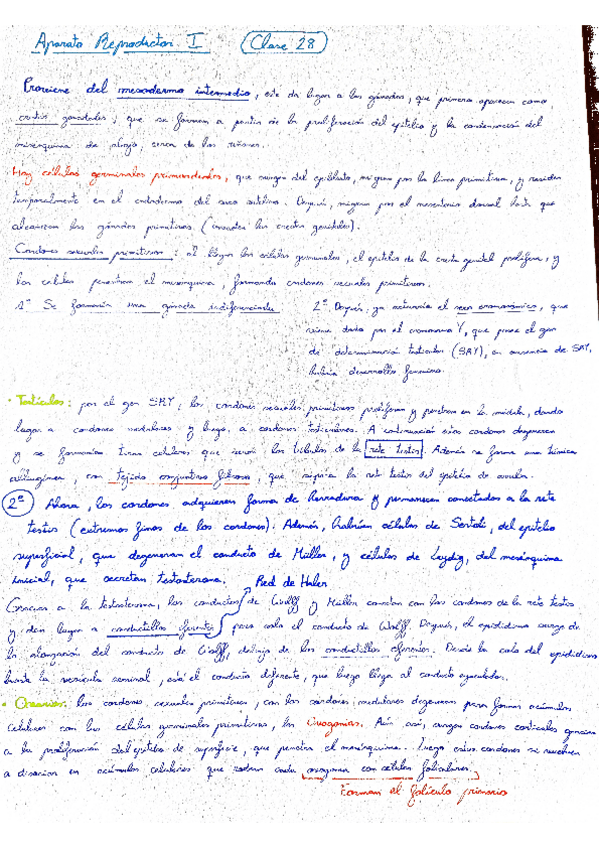 Aparato Reproductor I (Clase 28)
Proviene del mesodermo intermedio, este da lugar a las gónadas, que primero aparecen como
crestas gonadales, que se forman a partir de la proliferación del epitelio y la condensación del
mesénquima de abajo, cerca de los riñones.
Hay células germinales primordiales, que surgen del epiblasto, migran por la línea primitiva, y residen
temporalmente en el endodermo del saco vitelino. Después, migran por el mesenterio dorsal hasta que
alcanzan las gónadas primitivas. (invaden las crestas genitales).
Cordones sexuales primitivos: al llegar las células germinales, el epitelio de la cresta genital prolifera, y
las células penetran el mesénquima, formando cordones sexuales primitivos.
1º Se formaría una gónada indiferenciada
2º Después, ya actuaría el sexo cromosómico, que
viene dado por el cromosoma Y, que posee el gen
de determinación testicular (SRY), en ausencia de SRY,
habría desarrollo femenino.
· Testículos: por el gen SRY, los cordones sexuales primitivos proliferan y penetran en la médula, dando
lugar a cordones medulares y luego a cordones testiculares. A continuación estos cordones degeneran
y se formarían unas celulares que serán los túbulos de la rete testis. Además se forma una túnica
albugínea, con tejido conjuntivo fibroso, que separa la rete testis del epitelio de
2º Ahora, los cordones adquieren forma de herradura y permanecen conectados a la rete
testis (extremos finos de los cordones). Además, habrían células de Sertoli, del epitelio
superficial, que degeneran el conducto de Müller, y células de Leydig, del mesénquima
inicial, que secretan testosterona. Red de Haler
Gracias a la testosterona, los conductos de Wolff y Müller conectan con los cordones de la rete testis
y dan lugar a conductillos eferentes, pero solo el conducto de Wolff. Después, el epidídimo surge de
la elongación del conducto de Wolff, debajo de los conductillos eferentes. Desde la cola del epidídimo
hasta la vesícula seminal, está el conducto deferente, que luego llega al conducto eyaculador.
· Ovarios: los cordones sexuales primitivos, con los cordones medulares degeneran para formar acúmulos
celulares con las células germinales primitivas, las Ovogonias. Aún así, surgen cordones corticales gracias
a la proliferación del epitelio de superficie, que penetra el mesénquima. Luego estos cordones se vuelven
a disociar en acúmulos celulares que rodean cada ovogonia con células foliculares.
Forman el folículo primario